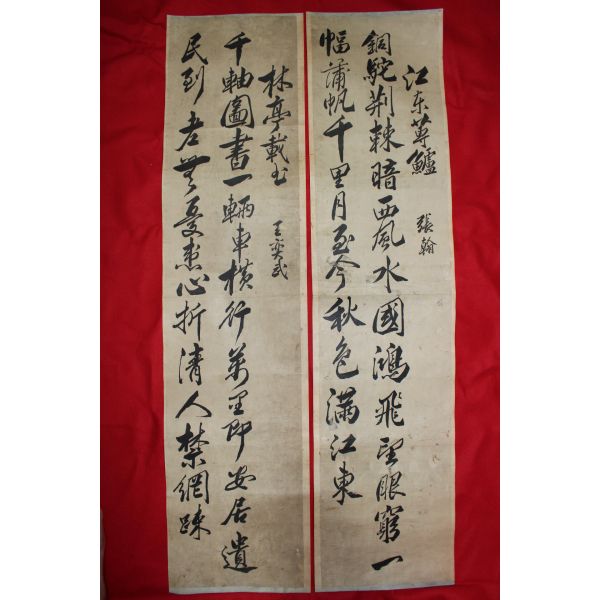 江东蓴鱸
張翰
銅駝荆棘暗西風水國鴻飛望眼窮一
幅蒲帆千里月至今秋色滿江東
林亭載书
王奕武
千軸圖書一輛車橫行萬里即安居遺
民到老無憂患心折清人禁網踈